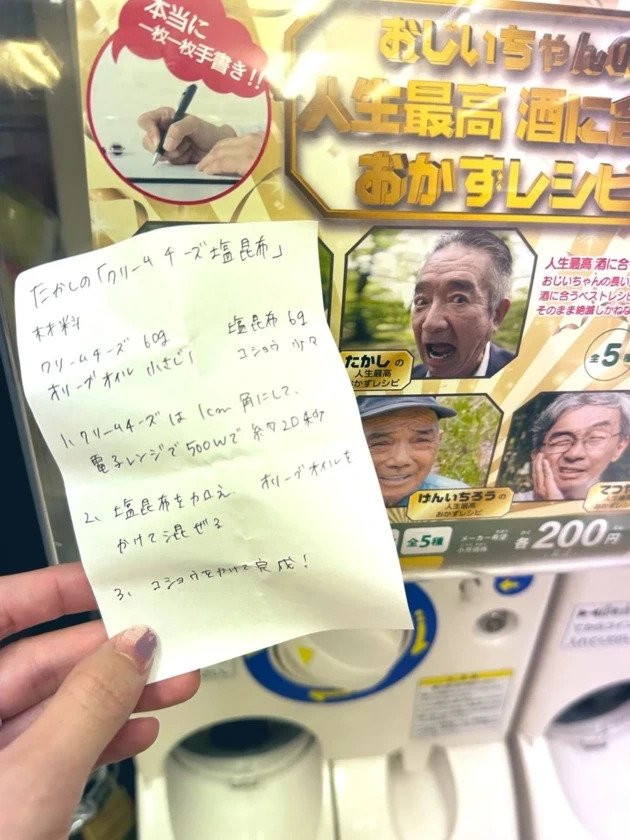 本当に
一枚一枚手書き!!
おじいちゃんの
人生最高 酒に合
おかずレシピ
人生最高 酒に合
おじいちゃんの長い
酒に合うベストレシピ
そのまま絶滅しかねな
全5種
たかしの
人生最高
おかずレシピ
けんいちろうの
人生最高
おかずレシピ
人生最高
おかずレシピ
全5種
メーカー希望
小売価格
各200円
たかしの「クリームチーズ塩昆布」
材料
クリームチーズ 60g 塩昆布 6g
オリーブオイル 小さじ1 コショウ 少々
1、クリームチーズは1cm角にして、
電子レンジで500Wで約20秒
2、塩昆布を加え オリーブオイルを
かけて混ぜる
3、コショウをかけて完成!